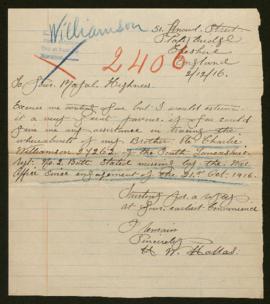 Williamson
51. Street
Stalybridge
Cheshire
England
2406
2/12/16.
To Your Royal Highness.
Excuse me writing you but I would esteem
it a very great favour if you could
give me any assistance in tracing the
whereabouts of my Brother Pte Charlie
Williamson of the South Lancashire
Regt. No. 2. Batt. Stated missing by the War
Office since engagement of the 21st Oct. 1916.
Trusting for a reply
at your earliest convenience
I remain
Sincerely
W.